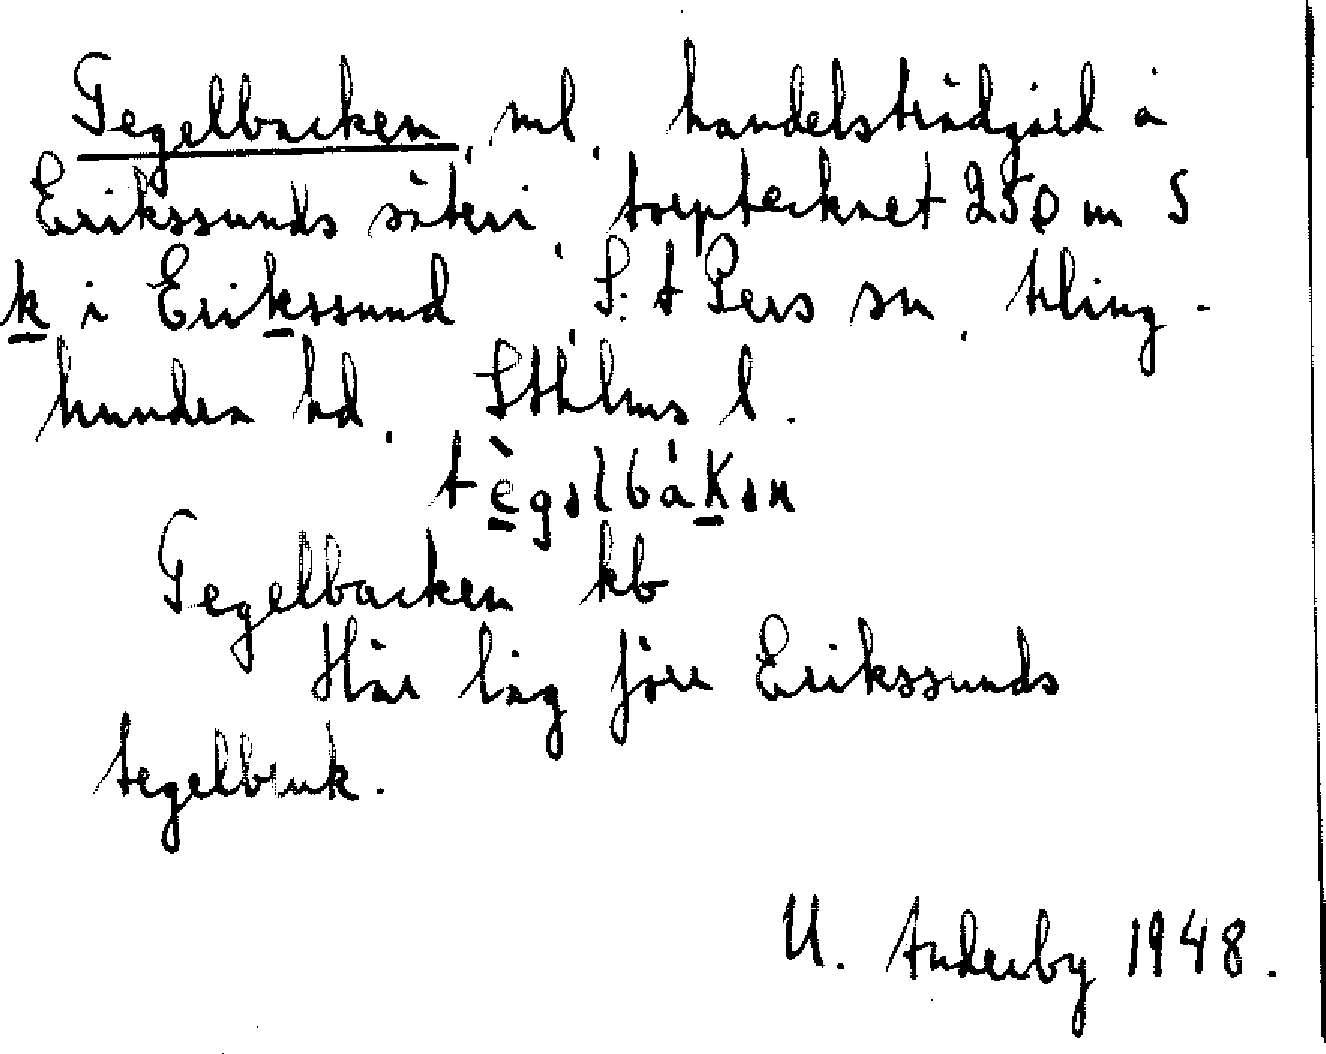 Tegelbacken, ml, handelsträdgård å
Erikssunds säteri, torptecknet 250 m S
k i Erikssund, S:t Pers sn, Ærling-
hundra hd, Sthlms l.
tègəlbákən
Tegelbacken kb
Här låg förr Erikssunds
tegelbruk.
U. Anderby 1948.